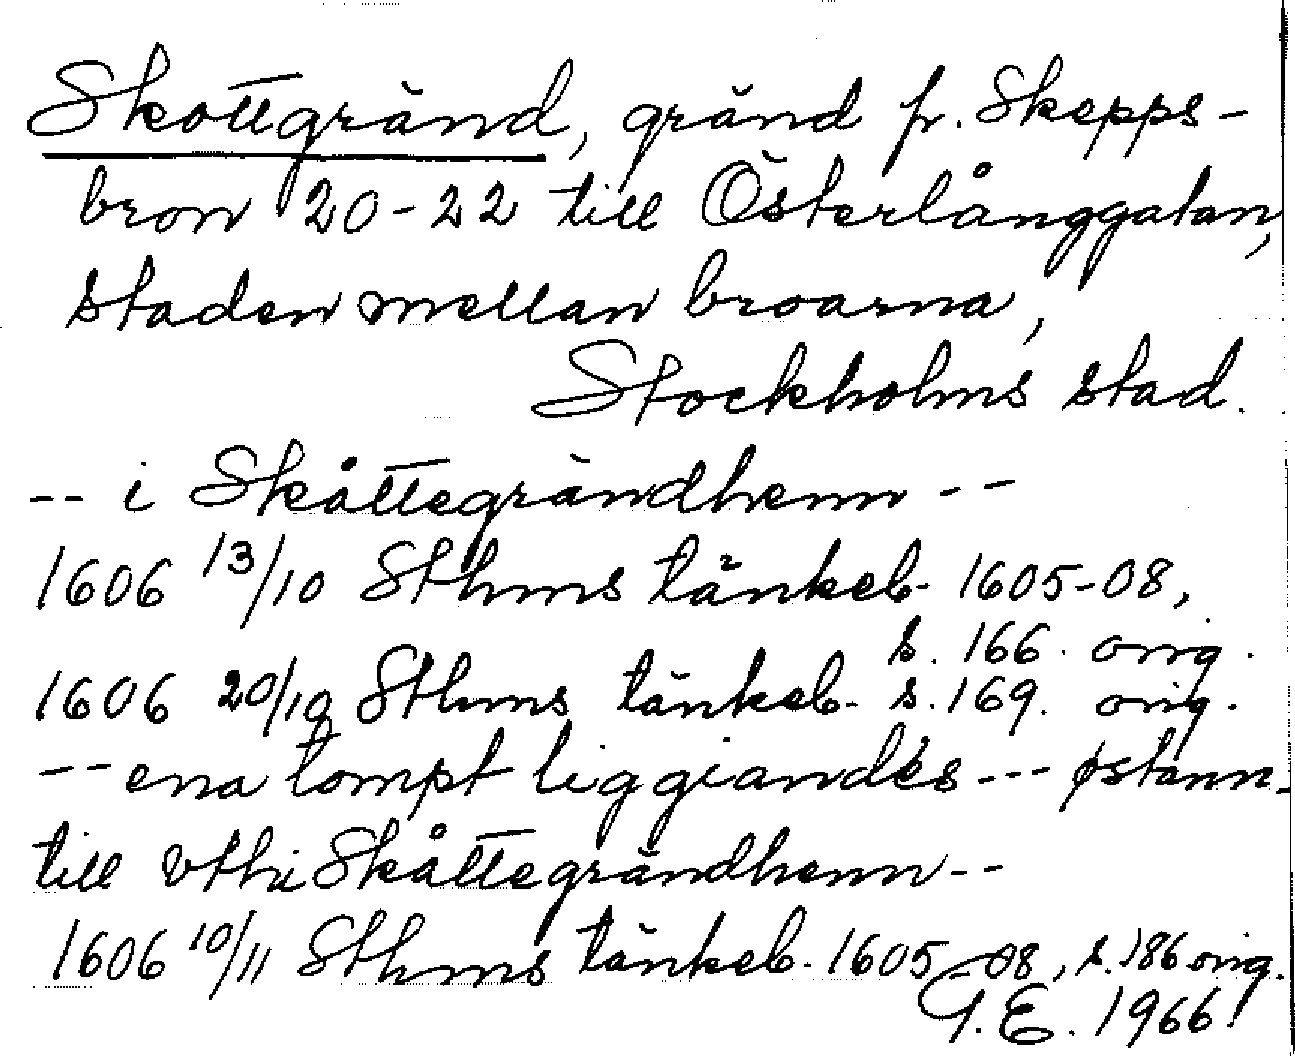 Skottgränd, gränd fr. Skepps-
bron 20-22 till Österlånggatan,
staden mellan broarna,
Stockholms stad.
-- i Skåttegrändhenn --
1606 13/10 Sthms tänkeb. 1605-08,
s. 166. orig.
1606 20/10 Sthms tänkeb. s. 169. orig.
-- ena tompt liggiandes --- østann-
till vthi Skåttegrändhenn --
1606 10/11 Sthms tänkeb. 1605-08, s. 186 orig.
G.E. 1966.